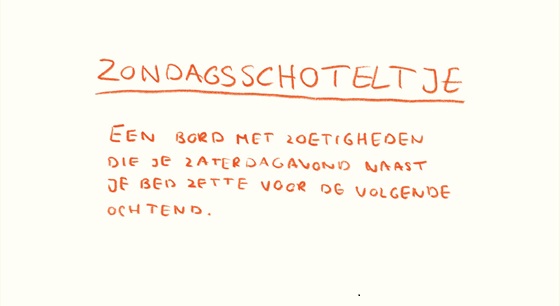 ZONDAGSSCHOTELTJE
EEN BORD MET ZOETIGHEDEN
DIE JE ZATERDAGAVOND NAAST
JE BED ZETTE VOOR DE VOLGENDE
OCHTEND.